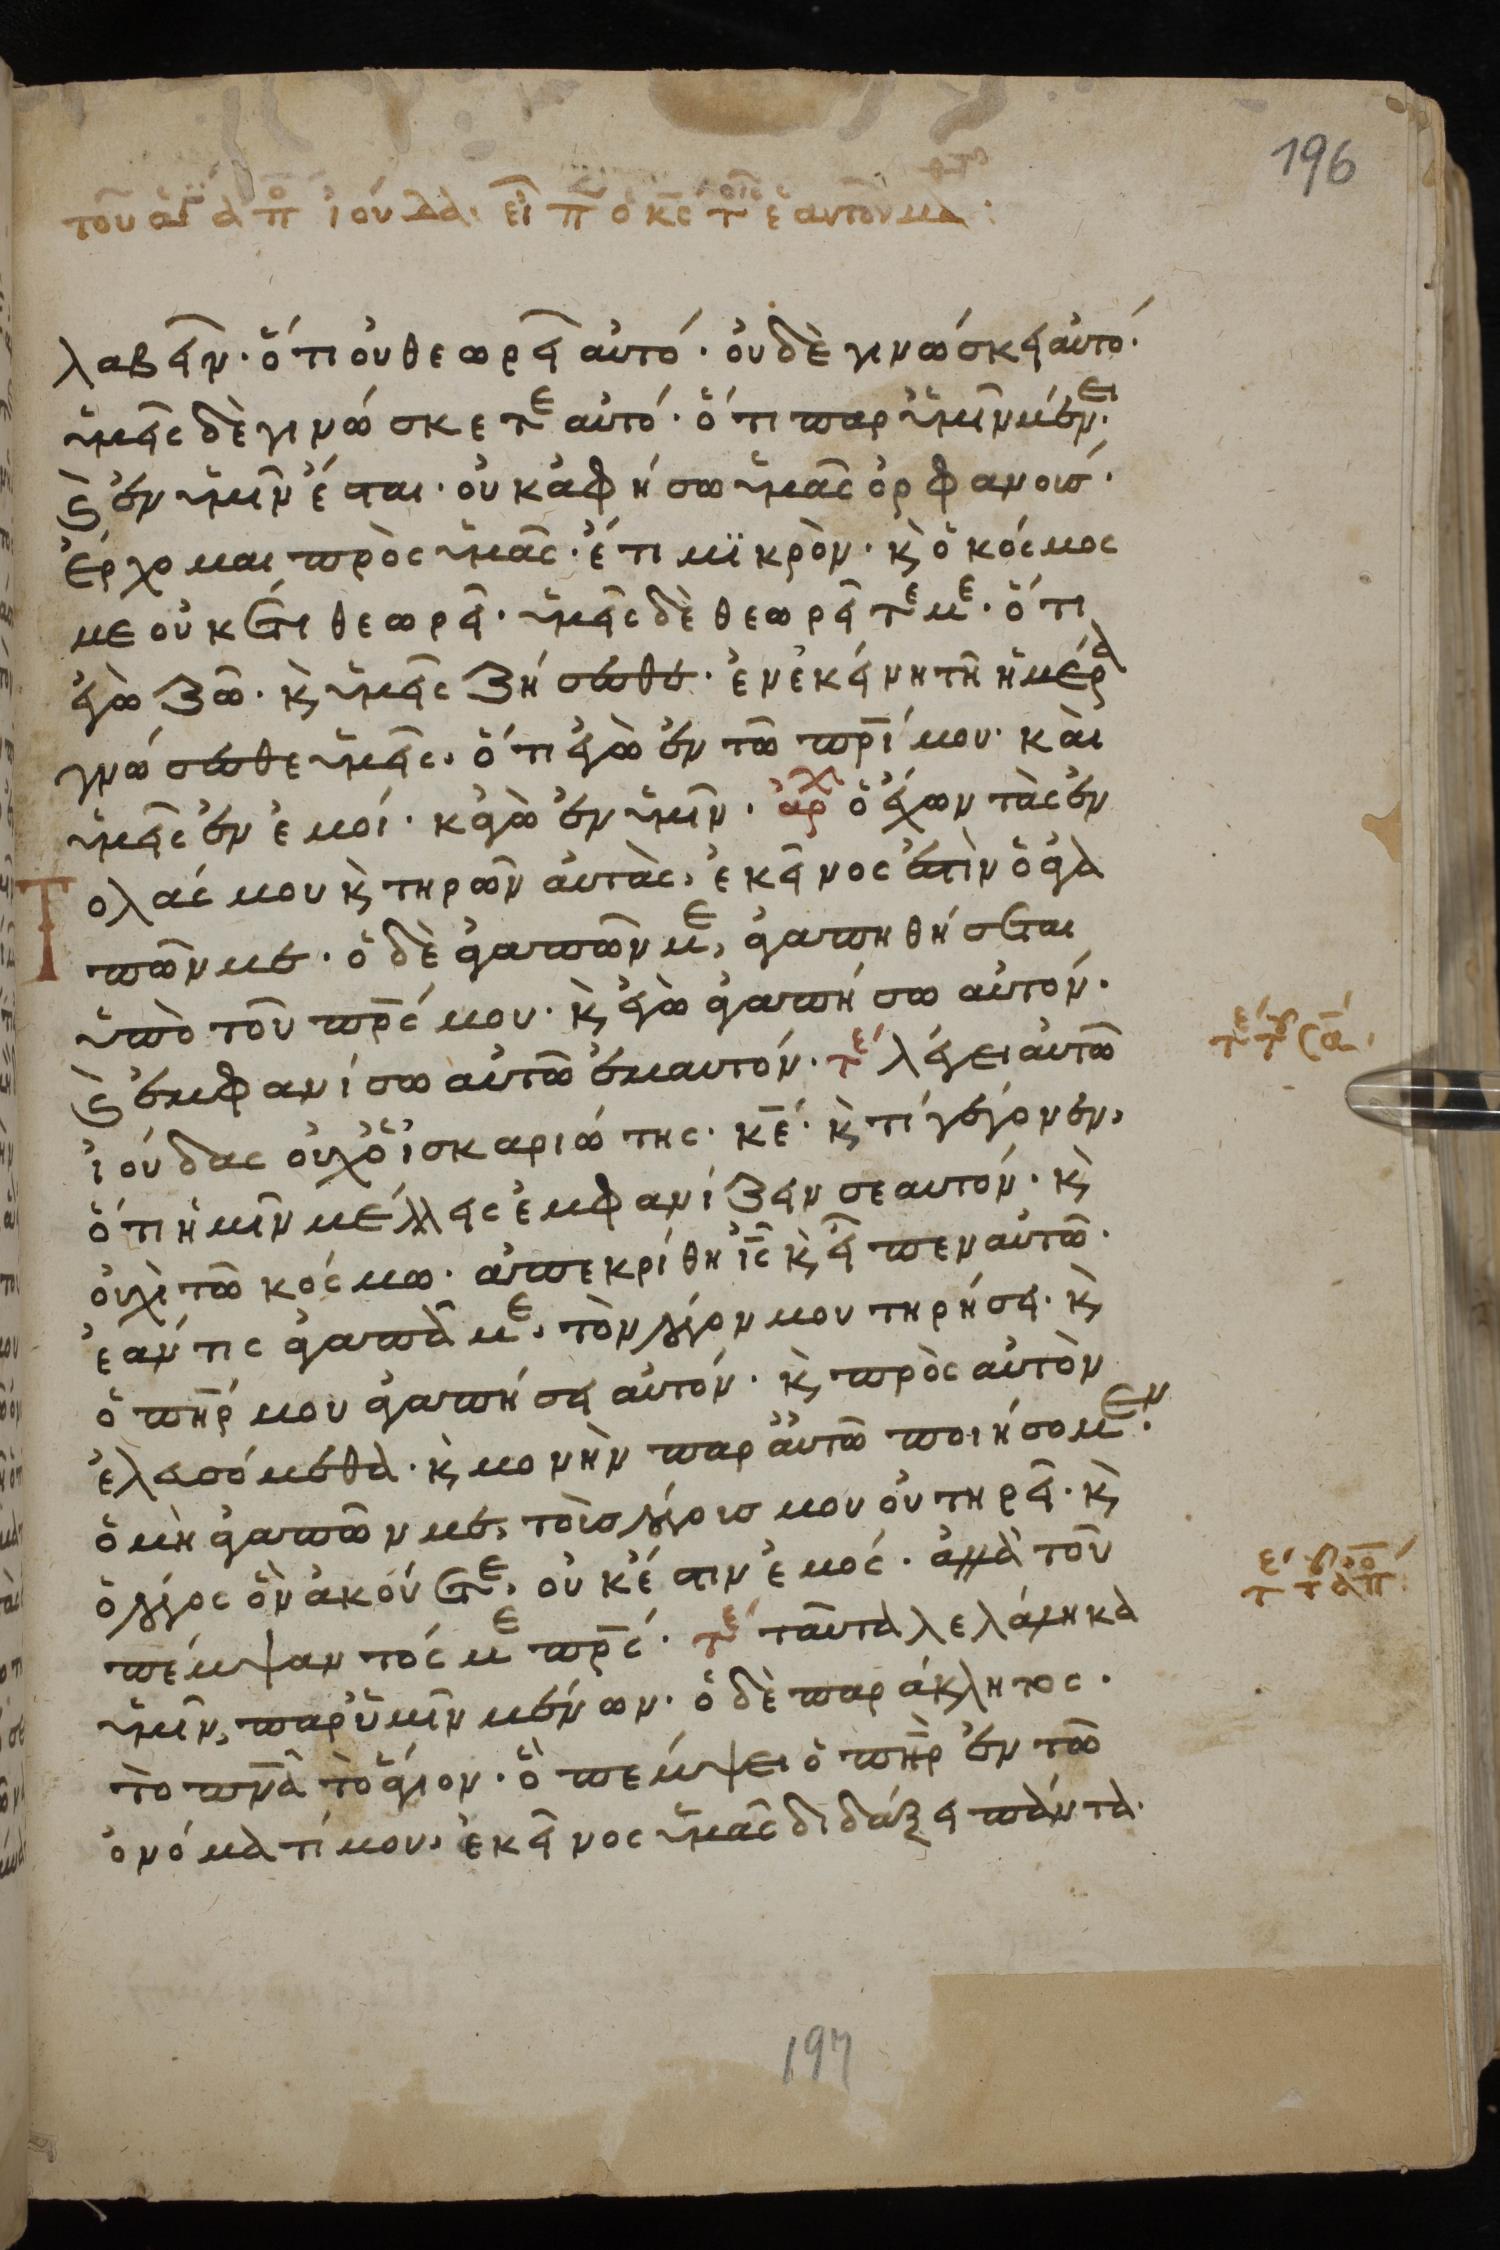 196
λαβεῖν· ὅτι οὐ θεωρεῖ αὐτό· οὐδὲ γινώσκει αὐτό·
ὑμεῖς δὲ γινώσκετε αὐτό· ὅτι παρ ὑμῖν μένει·
καὶ ἐν ὑμῖν ἔσται· οὐκ ἀφήσω ὑμᾶς ὀρφανοισ·
ἔρχομαι πρὸς ὑμᾶς· ἔτι μϊκρὸν· κ̀ ὁ κόσμος
με οὐκέτι θεωρεῖ· ὑμεῖς δὲ θεωρεῖτε με· ὅτι
ἐγὼ ζῶ· κ̀ ὑμεῖς ζήσεσθε· ἐν ἐκείνη τῆ ἡμέρα
γνώσεσθε ὑμεῖς, ὅτι ἐγὼ ἐν τῶ πρ̅ί μου· καὶ
ὑμεῖς ἐν ἐμοί· κἀγὼ ἐν ὑμῖν· ἀρχ ὁ ἔχων τὰς ἐν
τολάς μου κ̀ τηρῶν αὐτὰς, ἐκεῖνος ἐστὶν ὁ ἀγα
πῶν με· ὁ δὲ ἀγαπῶν με, ἀγαπηθήσεται
ὑπὸ τοῦ πρ̅ς μου· κ̀ ἐγὼ ἀγαπήσω αὐτόν·
καὶ ἐμφανίσω αὐτῶ ἐμαυτόν· τε λέγει αὐτῶ
ἰούδας οὐχ ὁ ἰσκαριώτης· κ̅ε· κ̀ τί γέγονεν,
ὅτι ἡμῖν μέλλεις ἐμφανίζειν σεαυτόν· κ̀
οὐχὶ τῶ κόσμω· ἀπεκρίθη ι̅ς κ̀ εἶπεν αὐτῶ·
ἐάν τις ἀγαπᾶ με, τὸν λόγον μου τηρήσει· κ̀
ὁ πη̅ρ μου ἀγαπήσει αὐτόν· κ̀ πρὸς αὐτὸν
ἐλευσόμεθα· κ̀ μονὴν παρ ἀυτῶ ποιήσομεν·
ὁ μὴ ἀγαπῶν με, τοὺσ λόγουσ μου οὐ τηρεῖ· κ̀
ὁ λόγος ὃν ἀκούετε, οὐκ έστιν ἐμός· ἀλλὰ τοῦ
πέμψαντός με πρ̅ς· τε ταῦτα λελάληκα
ὑμῖν, παρ ὑμῖν μένων· ὁ δὲ παράκλητος·
τὸ πν̅α τὸ ἅγιον· ὃ πέμψει ὁ πη̅ρ ἐν τῶ
ὀνόματί μου, ἐκεῖνος ὑμᾶς διδάξει πάντα·
197